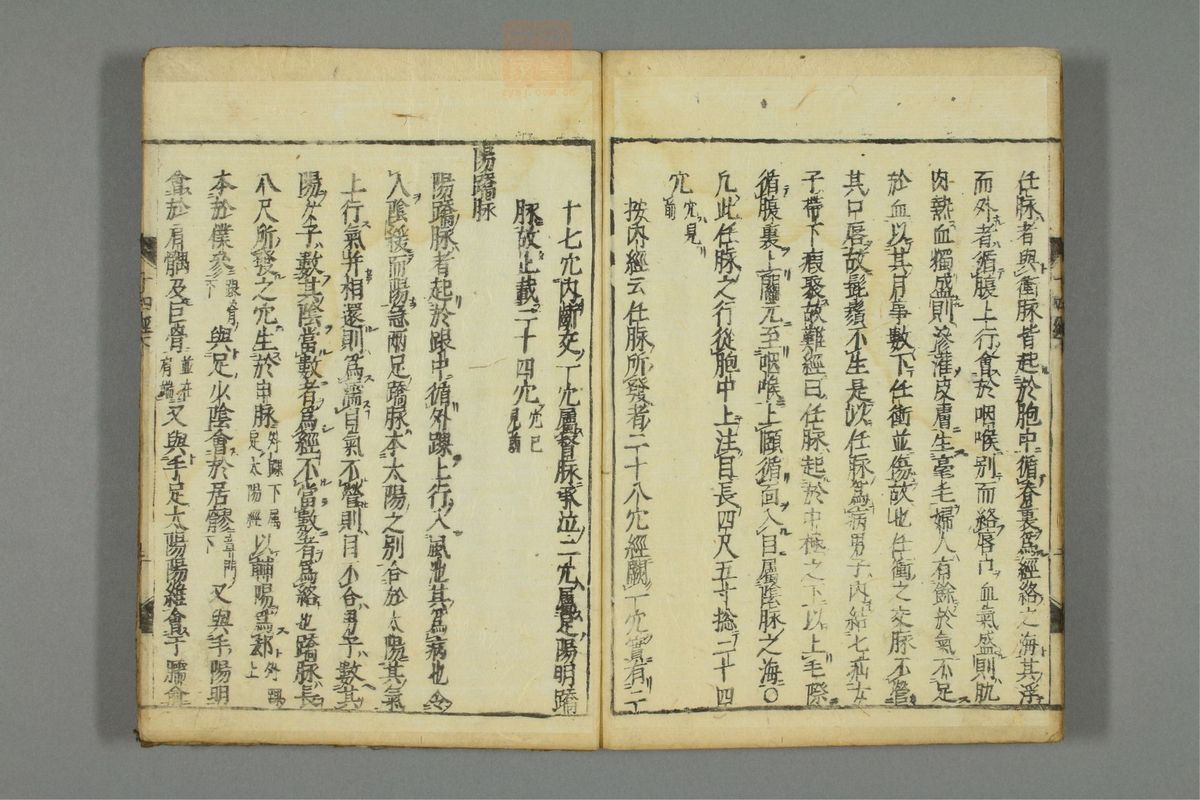 任脉者與衝脉皆起於胞中循脊裏爲經絡之海其浮
而外者循腹上行會於咽喉別而絡唇口血氣盛則肌
肉熱血獨盛則滲灌皮膚生毫毛婦人有餘於氣不足
於血以其月事數下任衝並傷故也任衝之交脉不營
其口唇故髭鬚不生是以任脉爲病男子内結七疝女
子帶下瘕聚故難經曰任脉起於中極之下以上毛際
循腹裏上關元至咽喉上頤循面入目屬陰脉之海○
凡此任脉之行從胞中上注目長四尺五寸捴二十四
穴穴見前
按内經云任脉所發者二十八穴經闕一穴實有二
十七穴内齗交一穴屬督脉承泣二穴屬足陽明蹻
脉故止載二十四穴穴已見前
陽蹻脉
陽蹻脉者起於跟中循外踝上行入風池其爲病也令
人陰緩而陽急兩足蹻脉本太陽之別合於太陽其氣
上行氣并相還則爲濡目氣不營則目不合男子數其
陽女子數其陰當數者爲經不當數者爲絡也蹻脉長
八尺所發之穴生於申脉外踝下属足太陽經以輔陽爲郄外踝上
本於僕參跟骨下與足少陰會於居髎章門下又與手陽明
會於肩髃及巨骨並在肩端又與手足太陽陽維會于臑俞